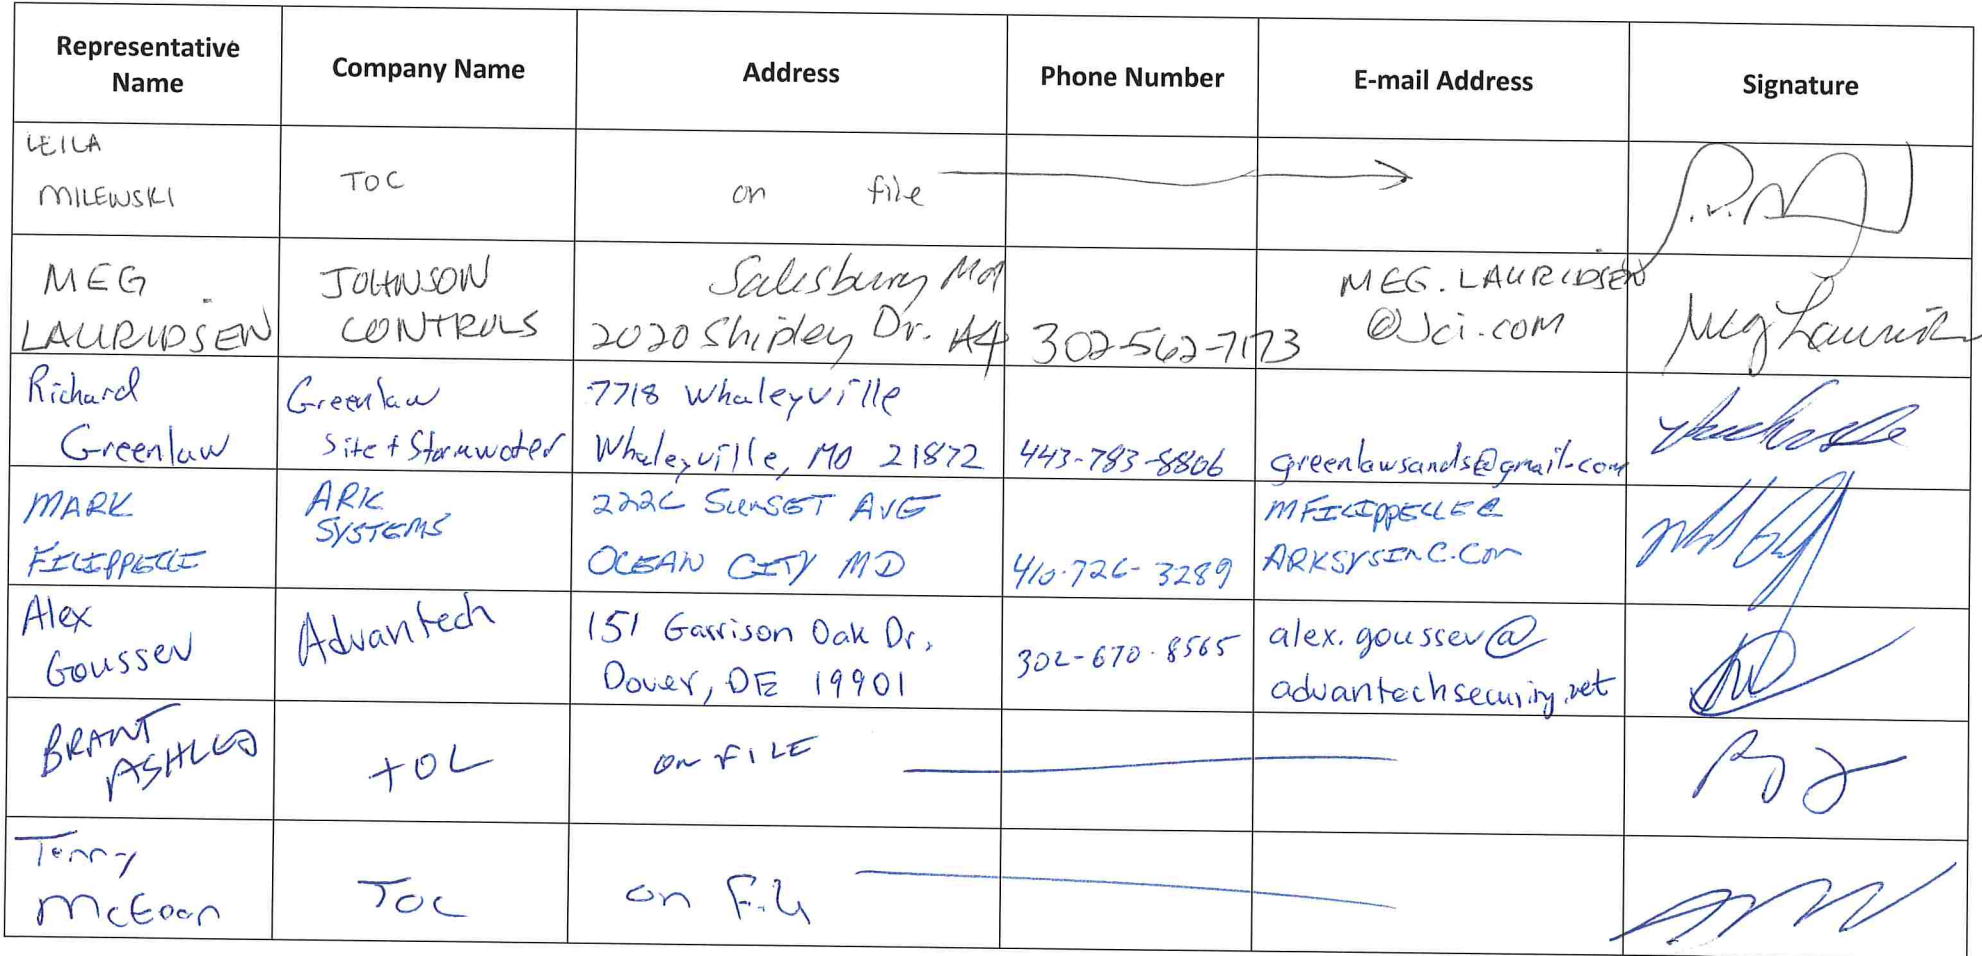 Representative Name
Company Name
Address
Phone Number
E-mail Address
Signature
LEILA
MILEWSKI
TOC
on file
MEG
LAURIDSEN
JOHNSON
CONTROLS
Salisbury Md
2020 Shipley Dr. A4
302-562-7173
MEG.LAURIDSEN
@Jci.com
Meg Laurid
Richard
Greenlaw
Greenlaw
Site + Stormwater
7718 Whaleyville
Whaleyville, MD 21872
443-783-8806
greenlawsands@gmail.com
MARK
FILIPPELLI
ARK
SYSTEMS
222C SUNSET AVE
OCEAN CITY MD
410-726-3289
MFILIPPELLI@
ARKSYSINC.COM
Alex
Goussev
Advantech
151 Garrison Oak Dr,
Dover, DE 19901
302-670-8565
alex.goussev@
advantechsecurity.net
BRANT
TOC
on FILE
McEoan
TOC
on File